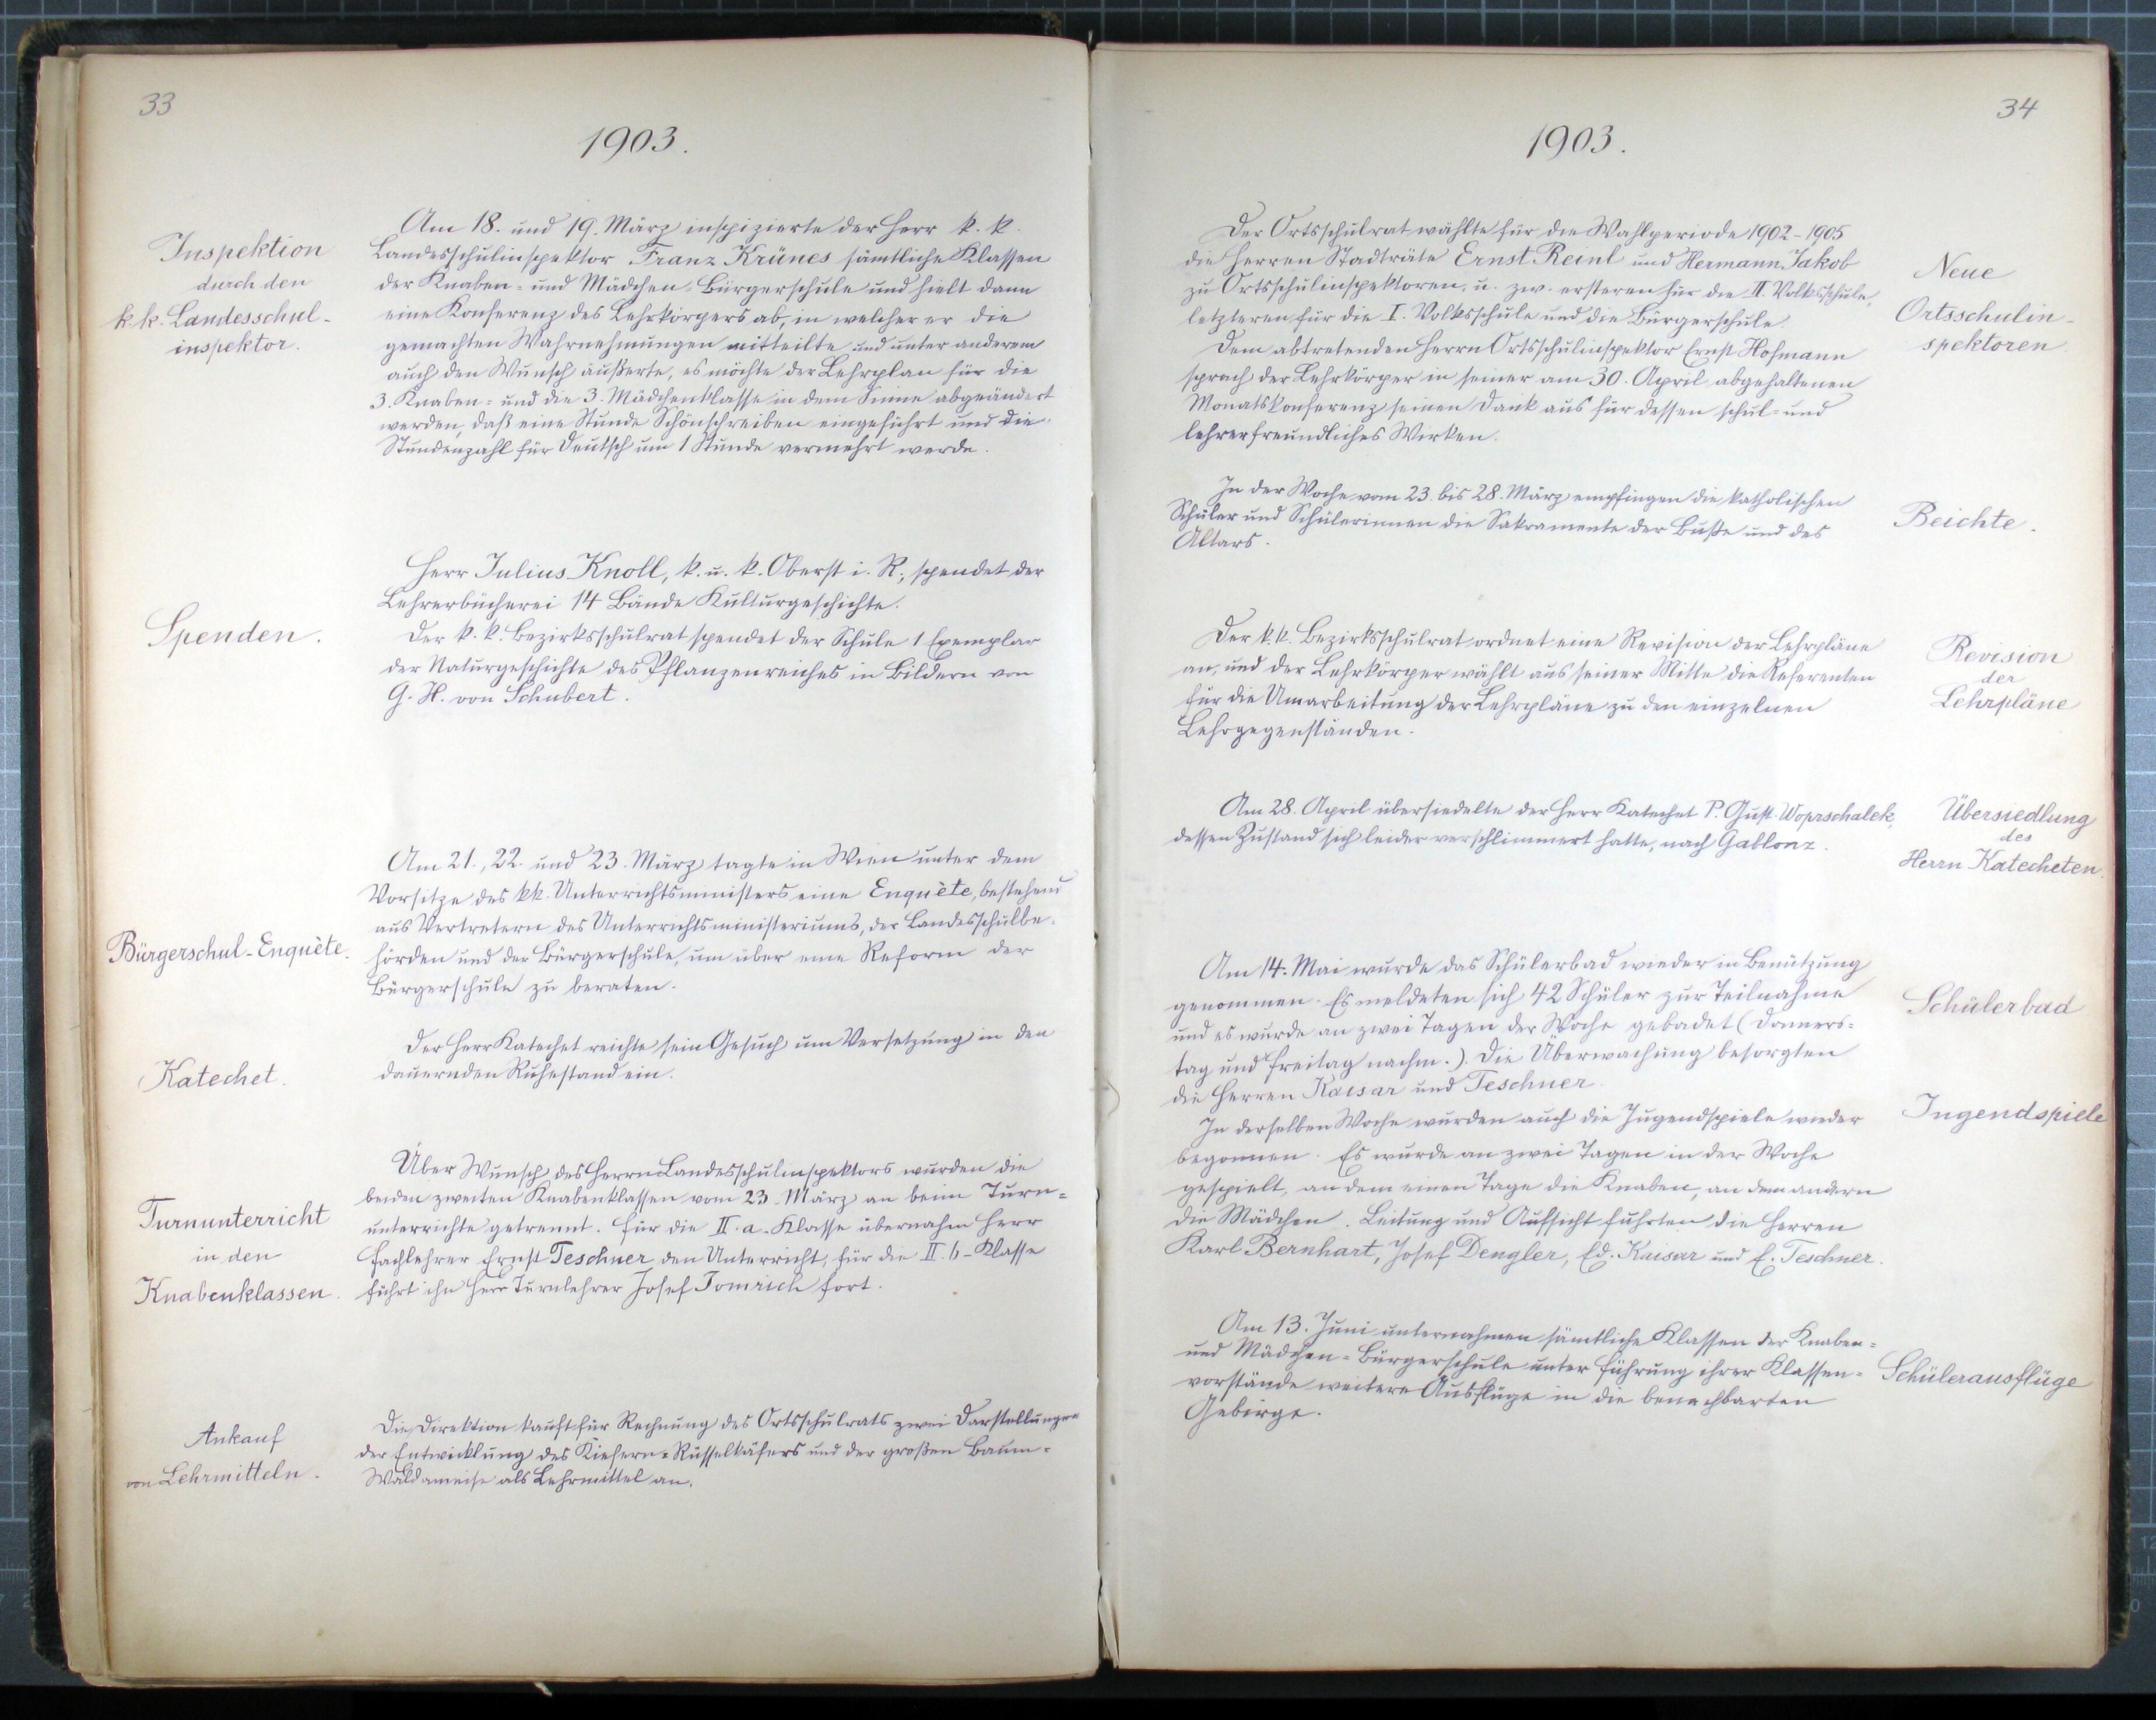 33
1903.
Inspektion
durch den
k. k. Landesschul-
inspektor.
Am 18. und 19. März inspizierte der Herr k. k.
Landesschulinspektor Franz Krünes sämtliche Klassen
der Knaben- und Mädchen-Bürgerschule und hielt dann
eine Konferenz des Lehrkörpers ab, in welcher er die
gemachten Wahrnehmungen mitteilte und unter anderem
auch den Wunsch äußerte, es möchte der Lehrplan für die
3. Knaben- und die 3. Mädchenklasse in dem Sinne abgeändert
werden, daß eine Stunde Schönschreiben eingeführt und die
Stundenzahl für Deutsch um 1 Stunde vermehrt werde.
Spenden.
Herr Julius Knoll, k. u. k. Oberst i. R., spendet der
Lehrerbücherei 14 Bände Kulturgeschichte.
Der k. k. Bezirksschulrat spendet der Schule 1 Exemplar
der Naturgeschichte des Pflanzenreiches in Bildern von
G. H. von Schubert.
Bürgerschul-Enquète.
Am 21., 22. und 23. März tagte in Wien unter dem
Vorsitze des kk. Unterrichtsministers eine Enquète, bestehend
aus Vertretern des Unterrichtsministeriums, der Landesschulbe-
hörden und der Bürgerschule, um über eine Reform der
Bürgerschule zu beraten.
Katechet.
Der Herr Katechet reichte sein Gesuch um Versetzung in den
dauernden Ruhestand ein.
Turnunterricht
in den
Knabenklassen.
Über Wunsch des Herrn Landesschulinspektors wurden die
beiden zweiten Knabenklassen vom 23. März an beim Turn-
unterrichte getrennt. Für die II. a-Klasse übernahm Herr
Fachlehrer Ernst Teschner den Unterricht, für die II. b-Klasse
führt ihn Herr Turnlehrer Josef Tomrich fort.
Ankauf
von Lehrmitteln.
Die Direktion kauft für Rechnung des Ortsschulrats zwei Darstellungen
der Entwicklung des Kiefern-Rüsselkäfers und der großen Baum-
Waldameise als Lehrmittel an.
34
1903.
Der Ortsschulrat wählte für die Wahlperiode 1902-1905
die Herren Stadträte Ernst Reinl und Hermann Jakob
zu Ortsschulinspektoren, u. zw. ersteren für die II. Volksschule,
letzteren für die I. Volksschule und die Bürgerschule.
Dem abtretenden Herrn Ortsschulinspektor Ernst Hofmann
sprach der Lehrkörper in seiner am 30. April abgehaltenen
Monatskonferenz seinen Dank aus für dessen schul- und
lehrerfreundliches Wirken.
Neue
Ortsschulin-
spektoren
In der Woche vom 23. bis 28. März empfingen die katholischen
Schüler und Schülerinnen die Sakramente der Buße und des
Altars.
Beichte.
Der k. k. Bezirksschulrat ordnet eine Revision der Lehrpläne
an, und der Lehrkörper wählt aus seiner Mitte die Referenten
für die Umarbeitung der Lehrpläne zu den einzelnen
Lehrgegenständen.
Revision
der
Lehrpläne
Am 28. April übersiedelte der Herr Katechet P. Gust. Woprschalek,
dessen Zustand sich leider verschlimmert hatte, nach Gablonz.
Übersiedlung
des
Herrn Katecheten.
Am 14. Mai wurde das Schülerbad wieder in Benützung
genommen. Es meldeten sich 42 Schüler zur Teilnahme
und es wurde an zwei Tagen der Woche gebadet (Donners-
tag und Freitag nachm.). Die Überwachung besorgten
die Herren Kaisar und Teschner.
Schülerbad
In derselben Woche wurden auch die Jugendspiele wieder
begonnen. Es wurde an zwei Tagen in der Woche
gespielt, an dem einen Tage die Knaben, an dem andern
die Mädchen. Leitung und Aufsicht führten die Herren
Karl Bernhart, Josef Dengler, Ed. Kaisar und E. Teschner.
Jugendspiele
Am 13. Juni unternahmen sämtliche Klassen der Knaben-
und Mädchen-Bürgerschule unter Führung ihrer Klassen-
vorstände weitere Ausflüge in die benachbarten
Gebirge.
Schülerausflüge